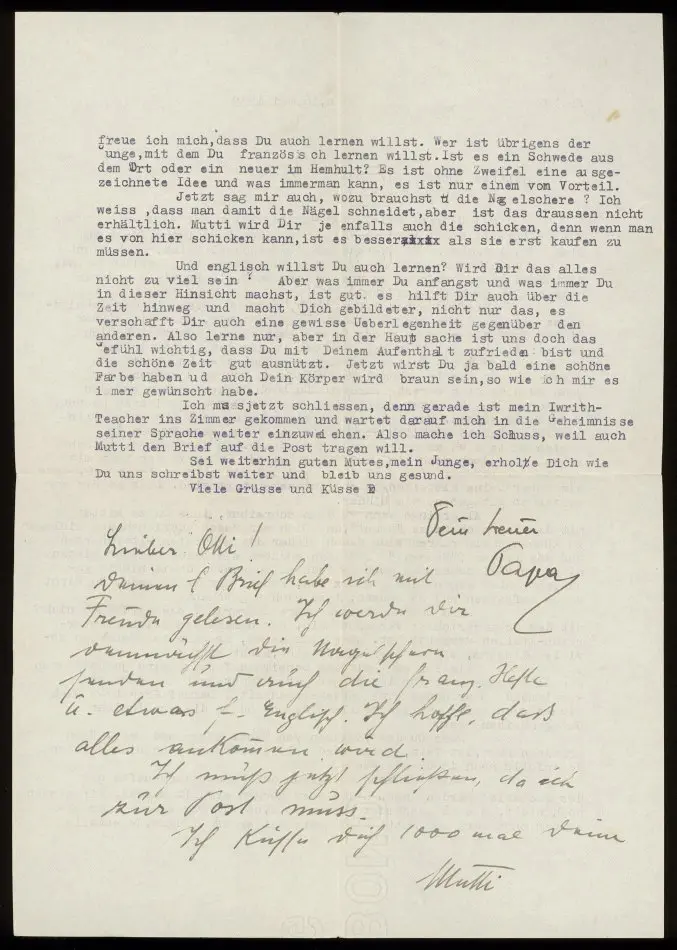 freue ich mich,dass Du auch lernen willst. Wer ist übrigens der
Junge,mit dem Du französisch lernen willst.Ist es ein Schwede aus
dem Ort oder ein neuer im Hemhult? Es ist ohne Zweifel eine ausge-
zeichnete Idee und was immerman kann, es ist nur einem vom Vorteil.
Jetzt sag mir auch, wozu brauchst d die Nagelschere ? Ich
weiss ,dass man damit die Nägel schneidet,aber ist das draussen nicht
erhältlich. Mutti wird Dir je enfalls auch die schicken, denn wenn man
es von hier schicken kann,ist es besserxxxxx als sie erst kaufen zu
müssen.
Und englisch willst Du auch lernen? Wird Dir das alles
nicht zu viel sein ? Aber was immer Du anfangst und was immer Du
in dieser Hinsicht machst, ist gut. es hilft Dir auch über die
Zeit hinweg und macht Dich gebildeter, nicht nur das, es
verschafft Dir auch eine gewisse Ueberlegenheit gegenüber den
anderen. Also lerne nur, aber in der Haupt sache ist uns doch das
Gefühl wichtig, dass Du mit Deinem Aufenthalt zufrieden bist und
die schöne Zeit gut ausnützt. Jetzt wirst Du ja bald eine schöne
Farbe haben u d auch Dein Körper wird braun sein,so wie ich mir es
i mer gewünscht habe.
Ich mussjetzt schliessen, denn gerade ist mein Iwrith-
Teacher ins Zimmer gekommen und wartet darauf mich in die Geheimnisse
seiner Sprache weiter einzuweiehen. Also mache ich Schuss, weil auch
Mutti den Brief auf die Post tragen will.
Sei weiterhin guten Mutes,mein Junge, erholte Dich wie
Du uns schreibst weiter und bleib uns gesund.
Viele Grüsse und Küsse
Dein treuer
Papa
Lieber Olli!
Deinen l Brief habe ich mit
Freude gelesen. Ich werde dir
demnächst die Nagelschere
senden und auch die franz. Hefte
u. etwas f. Englisch. Ich hoffe, daß
alles ankommen wird.
Ich muß jetzt schließen, da ich
zur Post muss.
Ich Küsse dich 1000 mal deine
Mutti